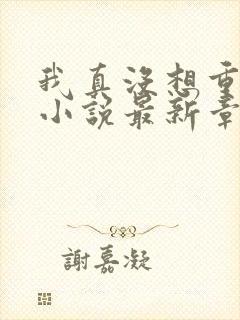 我真没想重
小说最新章
謝嘉凝